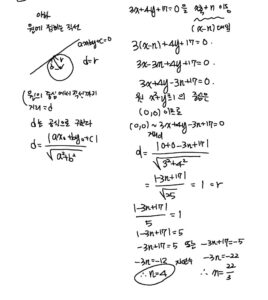 원에 접하는 직선
ax+by+c=0
r
d=r
(원의 중심에서 직선까지
거리=d
d는 공식으로 구한다
d = |ax₁+by₁+c| / √(a²+b²)
3x+4y+17=0을 x축 n 이동
(x-n) 대입
3(x-n)+4y+17=0.
3x-3n+4y+17=0.
3x+4y-3n+17=0
원 x²+y²=1의 중심은
(0,0) 이므로
(0,0) ~ 3x+4y-3n+17=0
d = |0+0-3n+17| / √(3²+4²)
= |-3n+17| / √25 = 1 = r
|-3n+17| / 5 = 1
|-3n+17|=5
-3n+17=5 또는 -3n+17=-5
-3n=-12 자연수 -3n=-22
∴ n=4 ∴ n=22/3